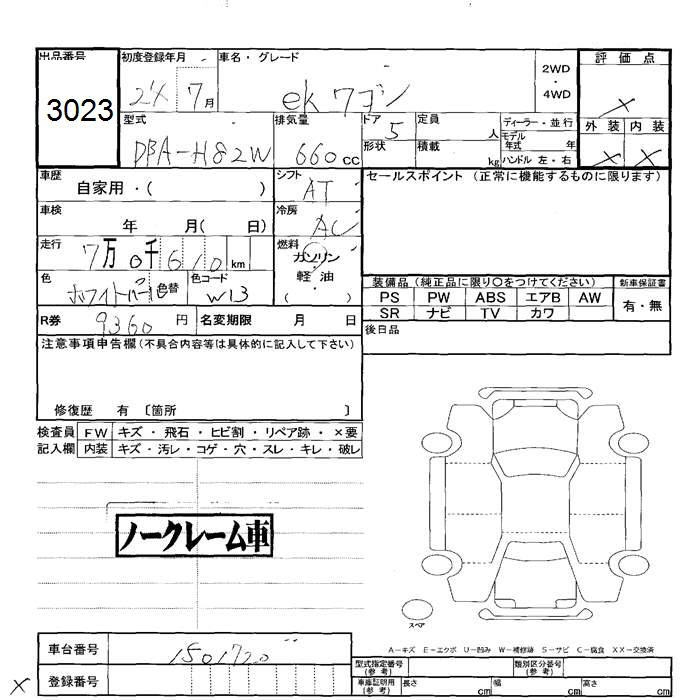 出品番号
3023
初度登録年月
24 7月
車名・グレード
ek ワゴン
2WD
・
4WD
評価点
×
外装 内装
× ×
型式
DBA-H82W
排気量
660cc
ドア
5
形状
定員 人
積載 kg
ディーラー・並行
モデル
年式 年
ハンドル 左・右
車歴
自家用・( )
シフト
AT
車検
年 月( 日)
冷房
AC
走行
7万0千610km
燃料
ガソリン
・
軽油
( )
色
ホワイトパール
色替
色コード
W13
R券
9360円
名変期限 月 日
セールスポイント (正常に機能するものに限ります)
装備品(純正品に限り○をつけてください)
PS PW ABS エアB AW
SR ナビ TV カワ
新車保証書
有・無
後日品
注意事項申告欄(不具合内容等は具体的に記入して下さい)
修復歴 有 〔箇所 〕
検査員
記入欄
FW キズ・飛石・ヒビ割・リペア跡・×要
内装 キズ・汚レ・コゲ・穴・スレ・キレ・破レ
ノークレーム車
スペア
A-キズ E-エクボ U-凹み W-補修跡 S-サビ C-腐食 XX-交換済
車台番号
1501720
登録番号
×
型式指定番号
(参考)
類別区分番号
(参考)
車庫証明用
(参考)
長さ cm 幅 cm 高さ cm